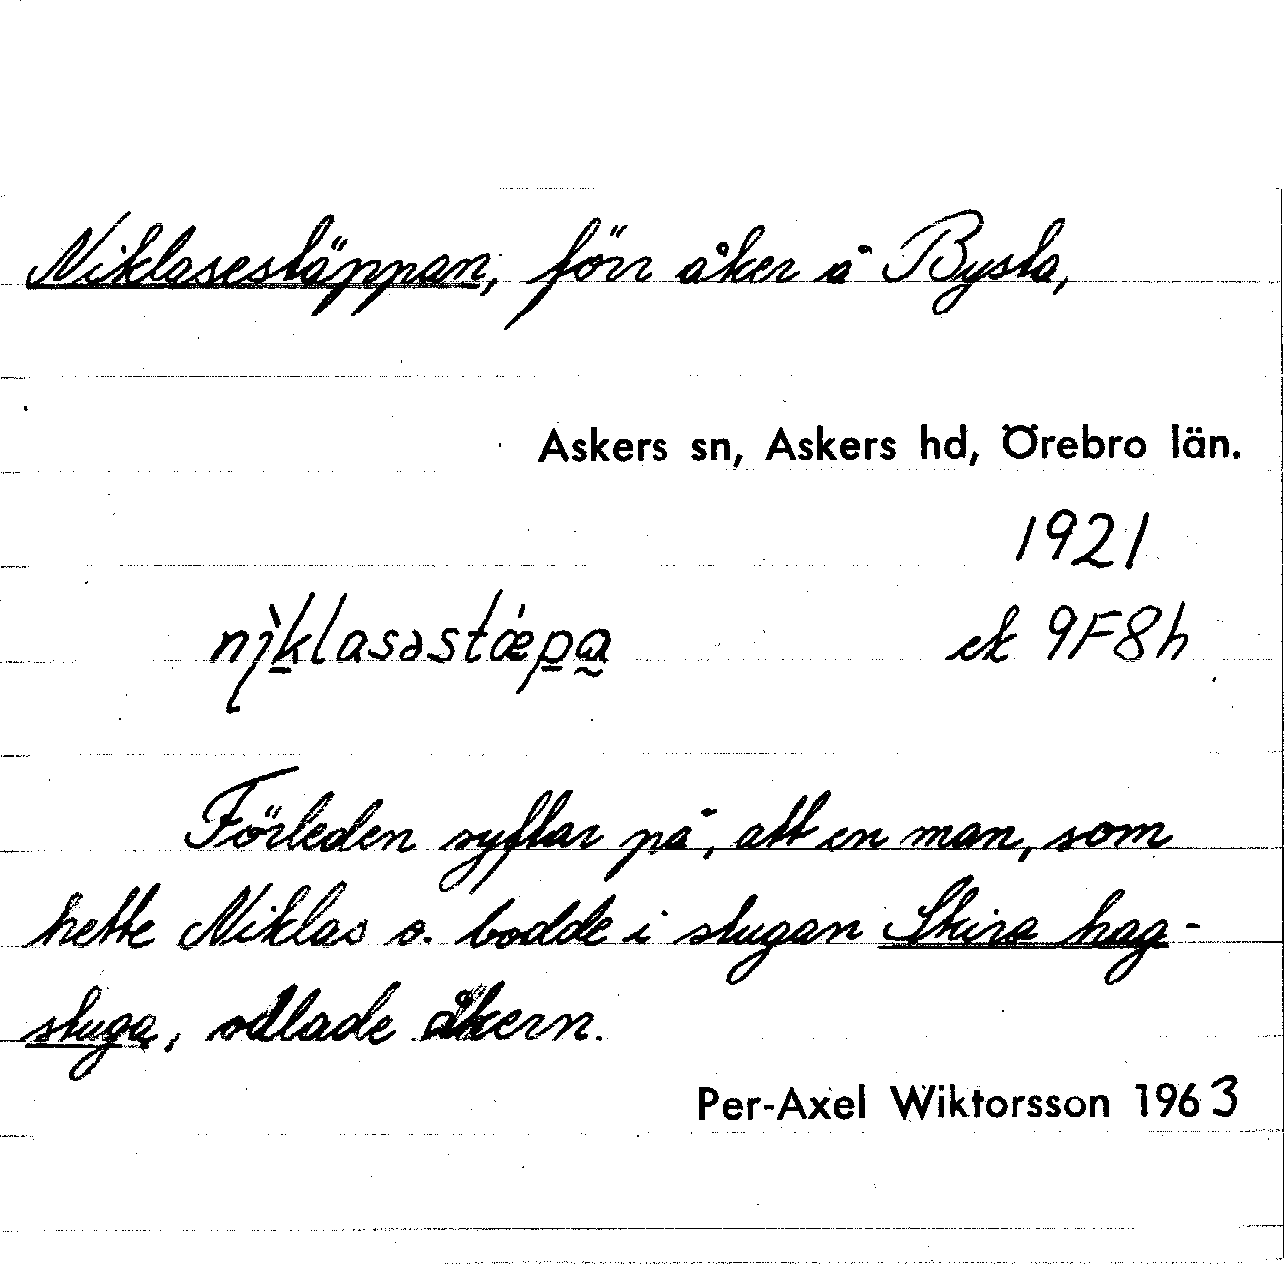 Niklasestäppan, förr åker å Bysta,
Askers sn, Askers hd, Örebro län.
1921
nìklasəstǽpa ek 9F8h
Förleden syftar på, att en man, som
hette Niklas o. bodde i stugan Skira hag-
stuga, odlade åkern.
Per-Axel Wiktorsson 1963